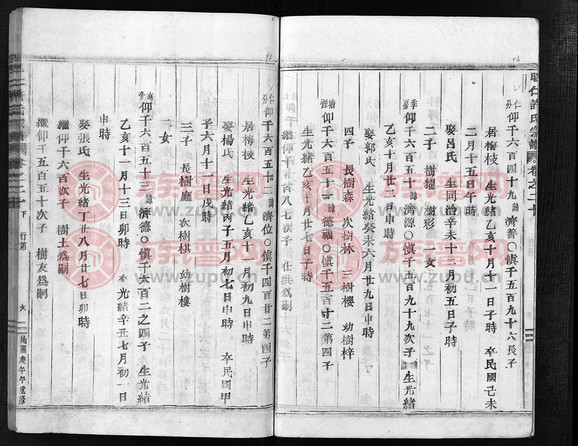 仁許氏宗譜 卷之二十
仰千六百四十九 諱濟善〇慎千五百九十六長子
居梅枝 生光緒乙亥十月二十一日子時 卒民國己未
二月十五日午時
娶呂氏 生同治辛未十三月初五日子時
二子 樹耀 樹彤 一女
仰千六百五十一 諱濟源〇慎千五百九十九次子 生光緒
娶郭氏 生光緒癸未六月廿九日申時
四子 長樹森 次樹林 三樹樓 幼樹梓
仰千六百五十二 諱德福〇慎千五百 十二第四子
生光緒乙亥 月廿九日申時 仕洪爲嗣
仰千六百五十三 諱濟位〇慎千四百廿二第四子
居梅枝 生光緒乙亥十一月初七日申時 卒民國甲
子六月十二日戌時
娶楊氏 生光緒丙子五月初七日申時
三子 長樹廳 次樹棋 幼樹樓
一女
仰千六百五十三 諱濟德〇慎千六百二之四子 生光緒
乙亥十一月十三日卯時 卒光緒辛丑七月初一日
申時
娶張氏 生光緒丁丑八月廿七日卯時
繼仰千六百次子 樹土爲嗣
繼仰千五百五十次子 樹友爲嗣
下 行第
民國庚午年重修
族譜网
www.zupu.cn